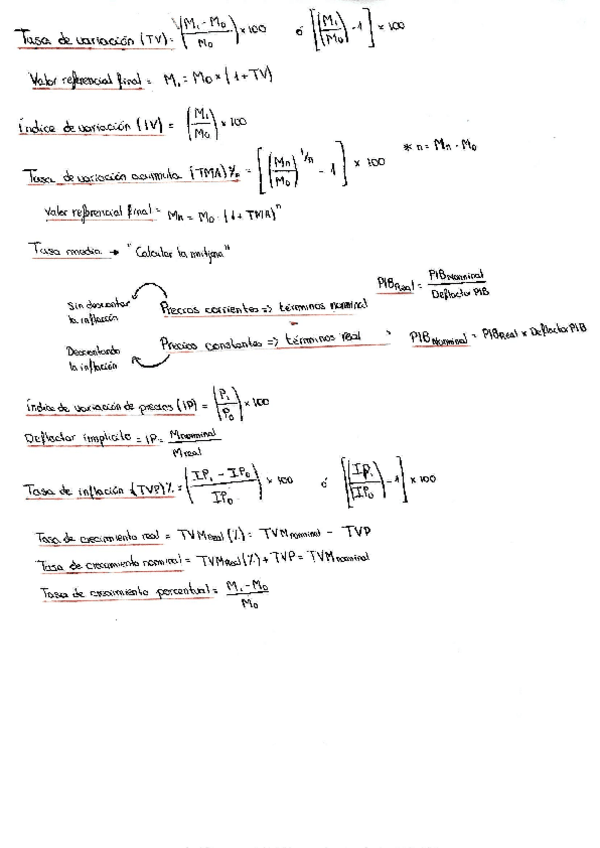 Tasa de variación (TV) = ((M₁ - M₀)/M₀) × 100 ó [(M₁/M₀) - 1] × 100
Valor referencial final = M₁ = M₀ × (1 + TV)
Índice de variación (IV) = (M₁/M₀) × 100
* n = Mn - M₀
Tasa de variación acumula (TMA)% = [(Mn/M₀)^1/n - 1] × 100
Valor referencial final = Mn = M₀ · (1 + TMA)ⁿ
Tasa media → "Calcular la mitjana"
Sin descontar la inflación
Precios corrientes => términos nominal
PIB Real = PIB Nominal / Deflactor PIB
Descontando la inflación
Precios constantes => términos real
PIB Nominal = PIB Real × Deflactor PIB
Índice de variación de precios (IP) = (P₁/P₀) × 100
Deflactor implícito = IP = M nominal / M real
Tasa de inflación (TVP)% = ((IP₁ - IP₀)/IP₀) × 100 ó [(IP₁/IP₀) - 1] × 100
Tasa de crecimiento real = TVM Real (%) = TVM nominal - TVP
Tasa de crecimiento nominal = TVM Real (%) + TVP = TVM nominal
Tasa de crecimiento porcentual = (M₁ - M₀)/M₀